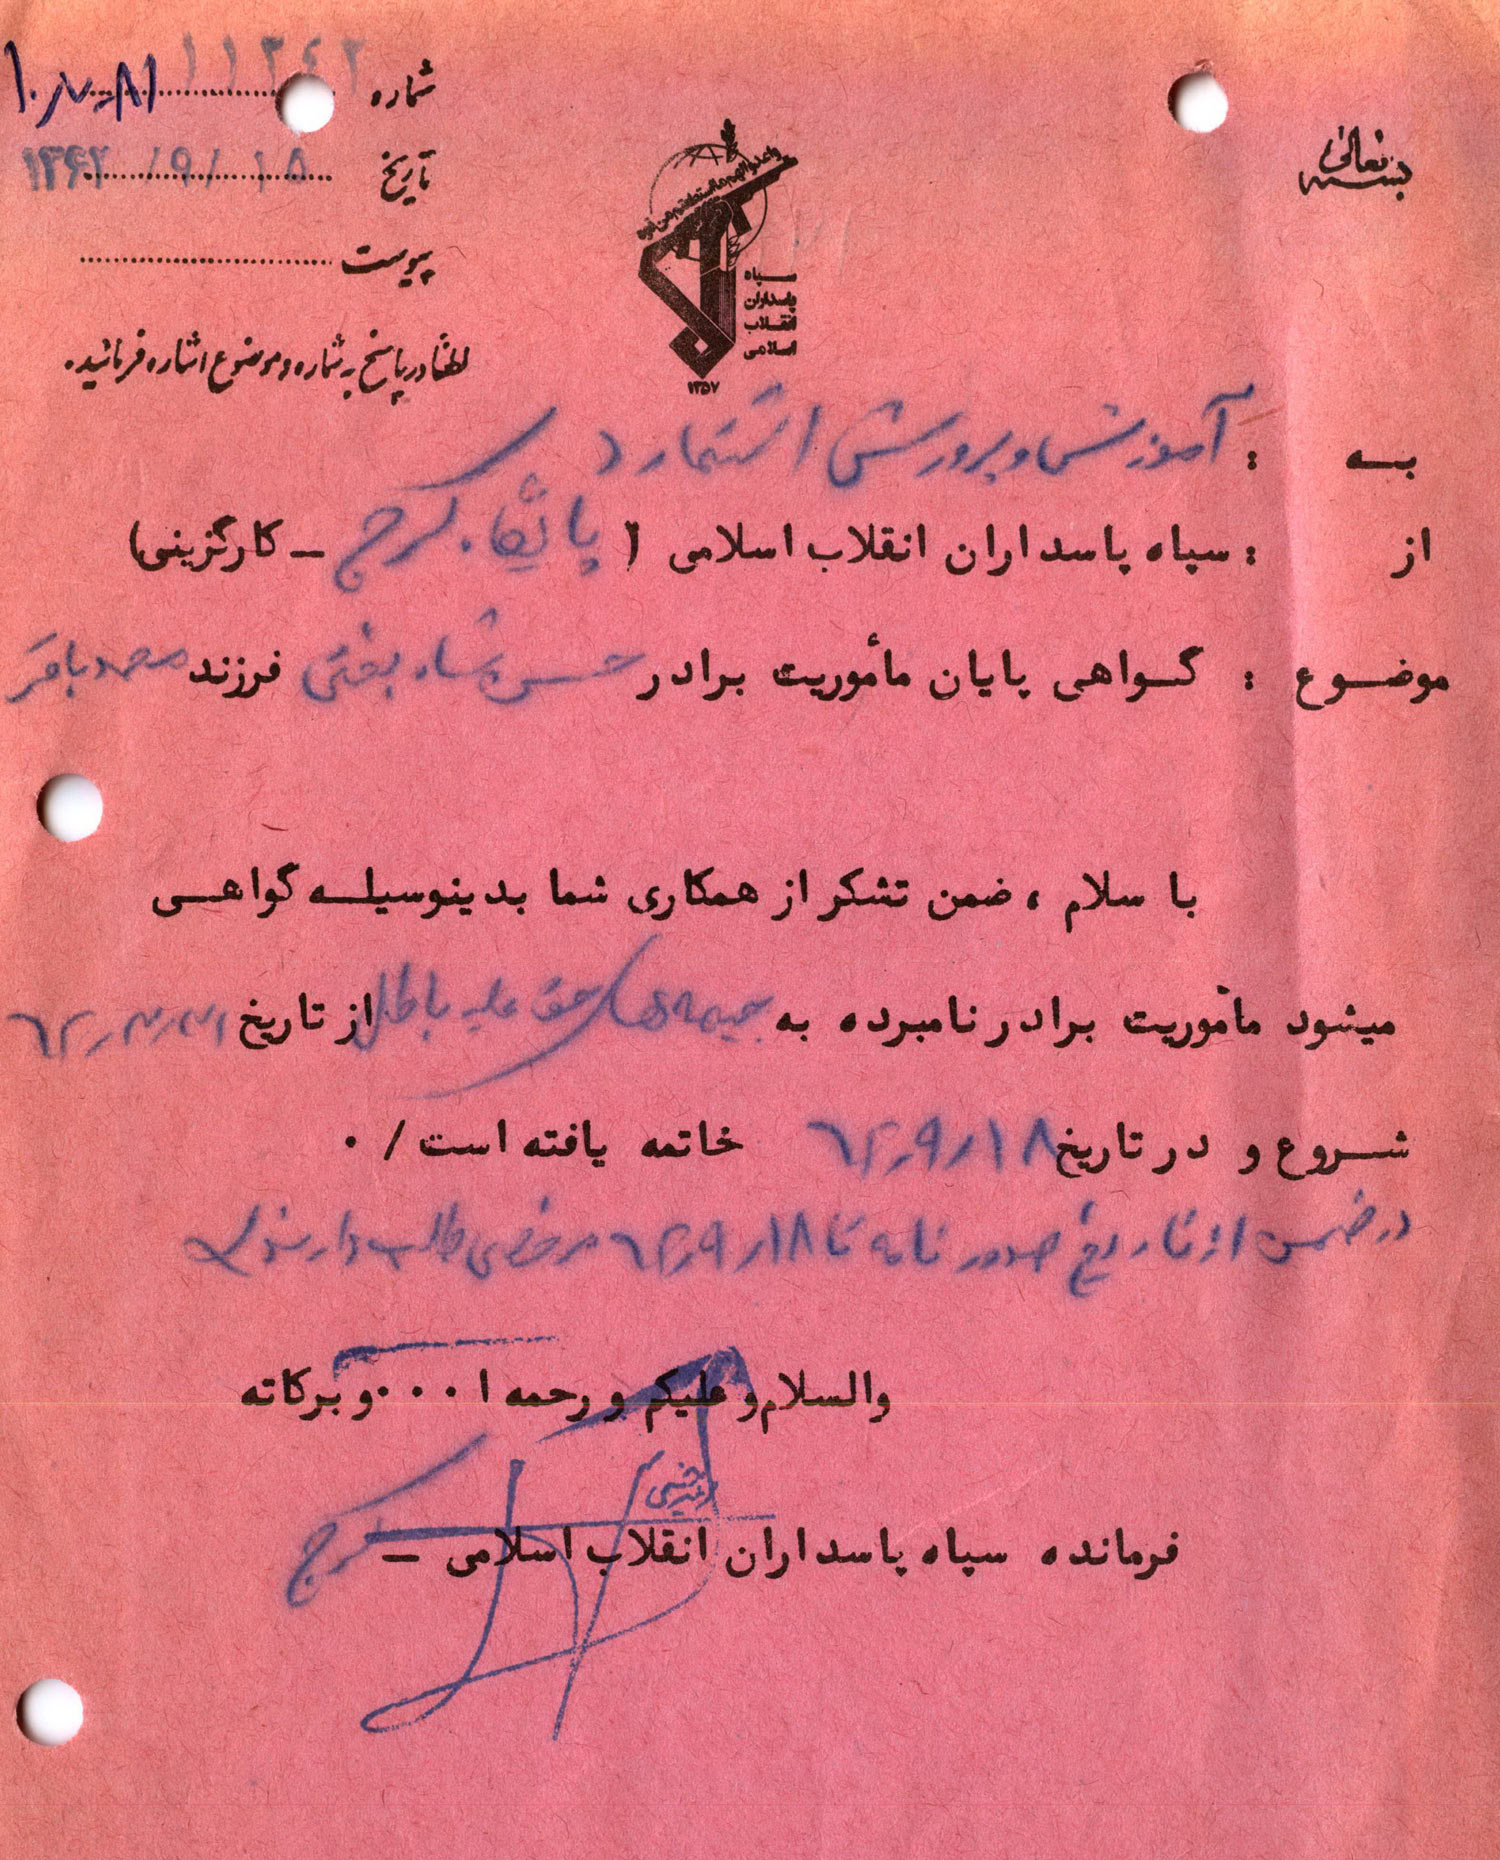 بسمه تعالی
شماره ۱۱۲۴۲
تاریخ ۱۳۶۲/۹/۱۵
پیوست
لطفاً در پاسخ به شماره و موضوع اشاره فرمائید.
سپاه
پاسداران
انقلاب
اسلامی
۱۳۵۷
به : آموزش و پرورش اشتهارد
از : سپاه پاسداران انقلاب اسلامی ( پایگاه کرج – کارگزینی)
موضوع : گواهی پایان مأموریت برادر حسن شاه بختی فرزند محمد باقر
با سلام ، ضمن تشکر از همکاری شما بدینوسیله گواهی
میشود مأموریت برادر نامبرده به جبهه های حق علیه باطل از تاریخ
شروع و در تاریخ ۶۲٫۹٫۱۸ خاتمه یافته است / ۰
در ضمن از تاریخ صدور نامه تا ۶۲٫۹٫۱۸ مرخصی طلب دارند
والسلام و علیکم و رحمه ا ۰۰۰ و برکاته
فرمانده سپاه پاسداران انقلاب اسلامی – کرج